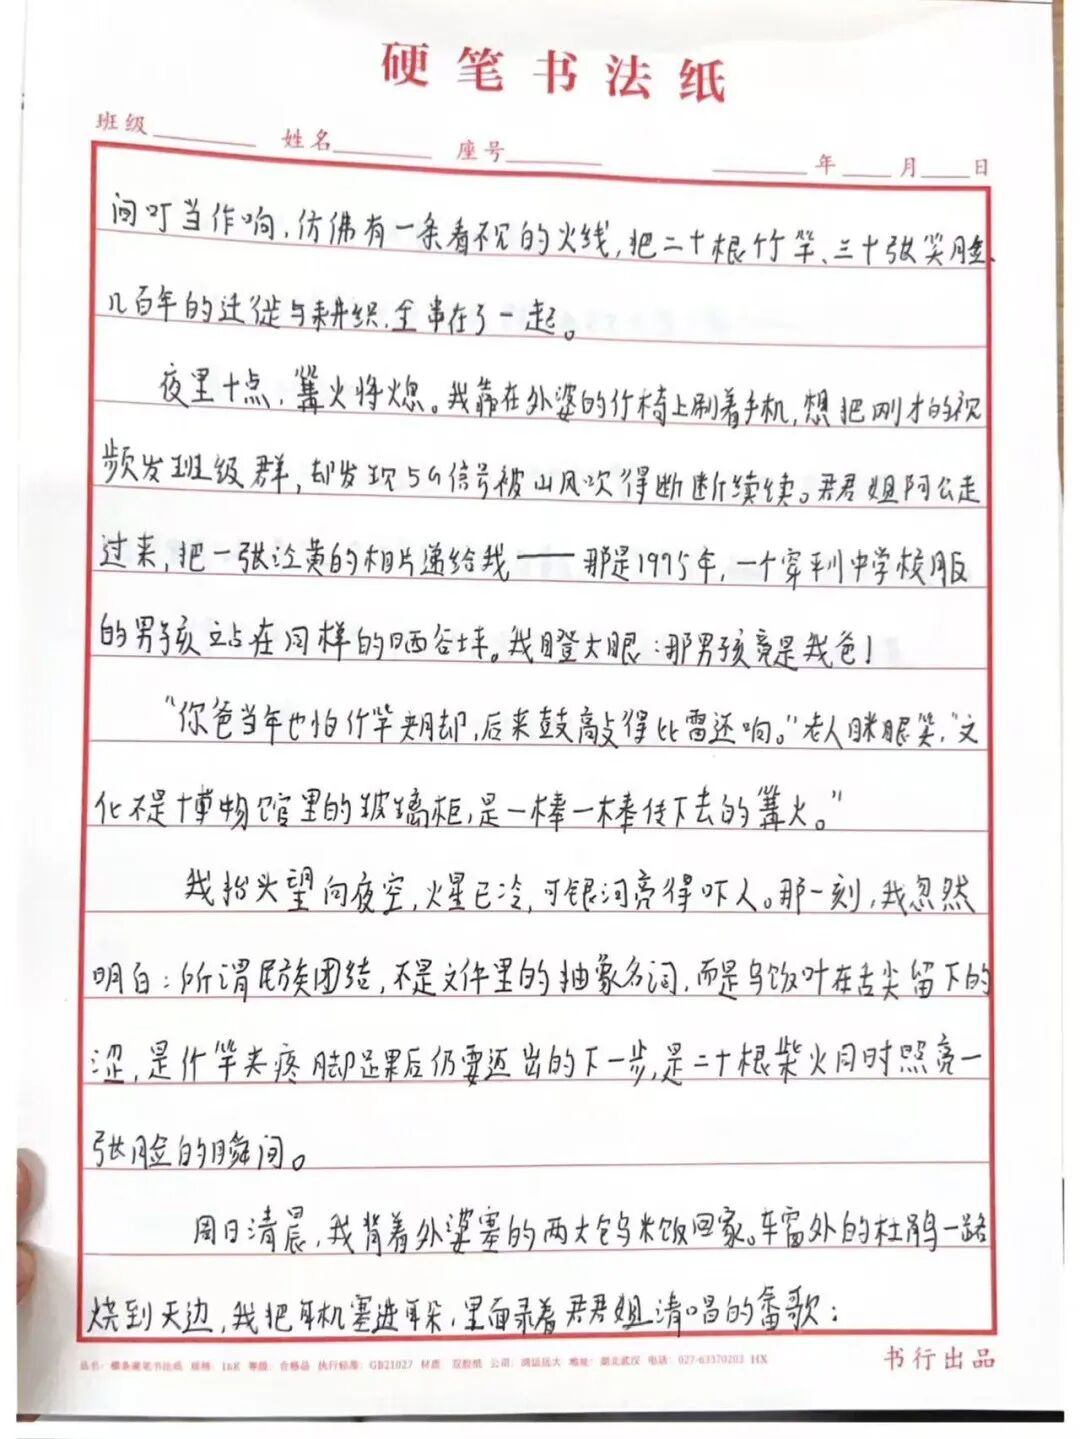 硬笔书法纸
班级 姓名 座号 年 月 日
间叮当作响，仿佛有一条看不见的火线，把二十根竹竿、三十张笑脸、
几百年的迁徙与耕织，全串在了一起。
夜里十点，篝火将熄。我靠在外婆的竹椅上刷着手机，想把刚才的视
频发班级群，却发现5G信号被山风吹得断断续续。君君姐阿公走
过来，把一张泛黄的相片递给我——那是1995年，一个穿平川中学校服
的男孩站在同样的晒谷坪。我瞪大眼：那男孩竟是我爸！
“你爸当年也怕竹竿夹脚，后来鼓敲得比雷还响。”老人眯眼笑，“文
化不是博物馆里的玻璃柜，是一棒一棒传下去的篝火。”
我抬头望向夜空，火星已冷，可银河亮得吓人。那一刻，我忽然
明白：所谓民族团结，不是文件里的抽象名词，而是乌饭叶在舌尖留下的
涩，是竹竿夹疼脚踝后仍要迈出的下一步，是二十根柴火同时照亮一
张脸的瞬间。
周日清晨，我背着外婆塞的两大包乌米饭回家。车窗外的杜鹃一路
烧到天边，我把耳机塞进耳朵，里面录着君君姐清唱的畲歌：
品名：横条硬笔书法纸 规格：16K 等级：合格品 执行标准：GB21027 材质：双胶纸 公司：鸿运远大 地址：湖北武汉 电话：027-63370203 HX
书行出品